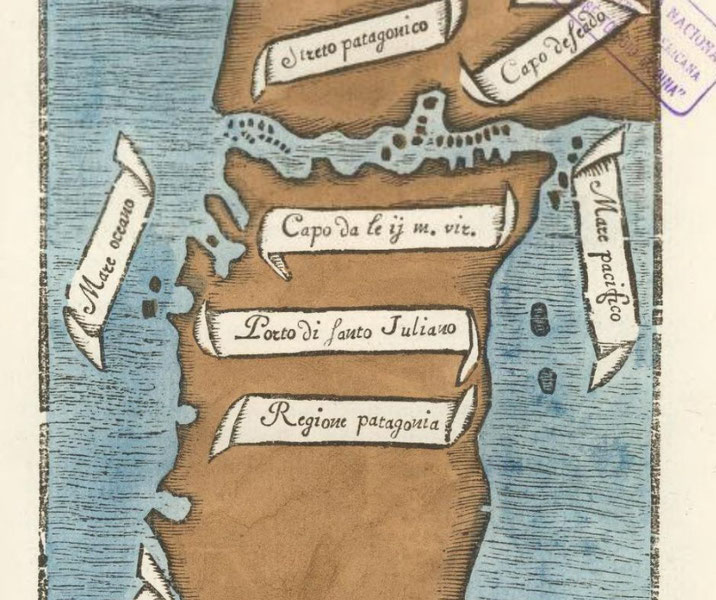 Streto patagonico
Capo deseado
NACIONA
Mare oceano
Capo da le ij m. vir.
Mare pacifico
Porto di santo Juliano
Regione patagonia